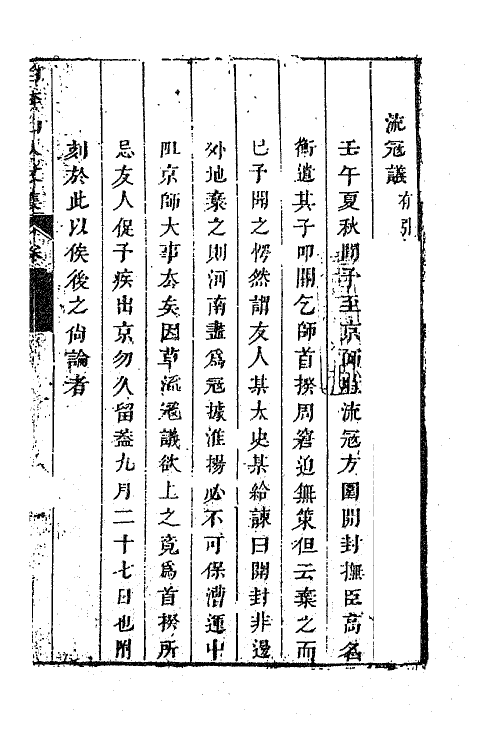 流寇議有引
壬午夏秋間予至京師時流寇方圍開封撫臣高名
衡遣其子叩關乞師首揆周窘迫無策但云棄之而
已予聞之愕然謂友人某太史某給諫曰開封非邊
外地棄之則河南盡爲寇據淮揚必不可保漕運中
阻京師大事去矣因草流寇議欲上之竟爲首揆所
忌友人促予疾出京勿久留蓋九月二十七日也附
刻於此以俟後之尚論者